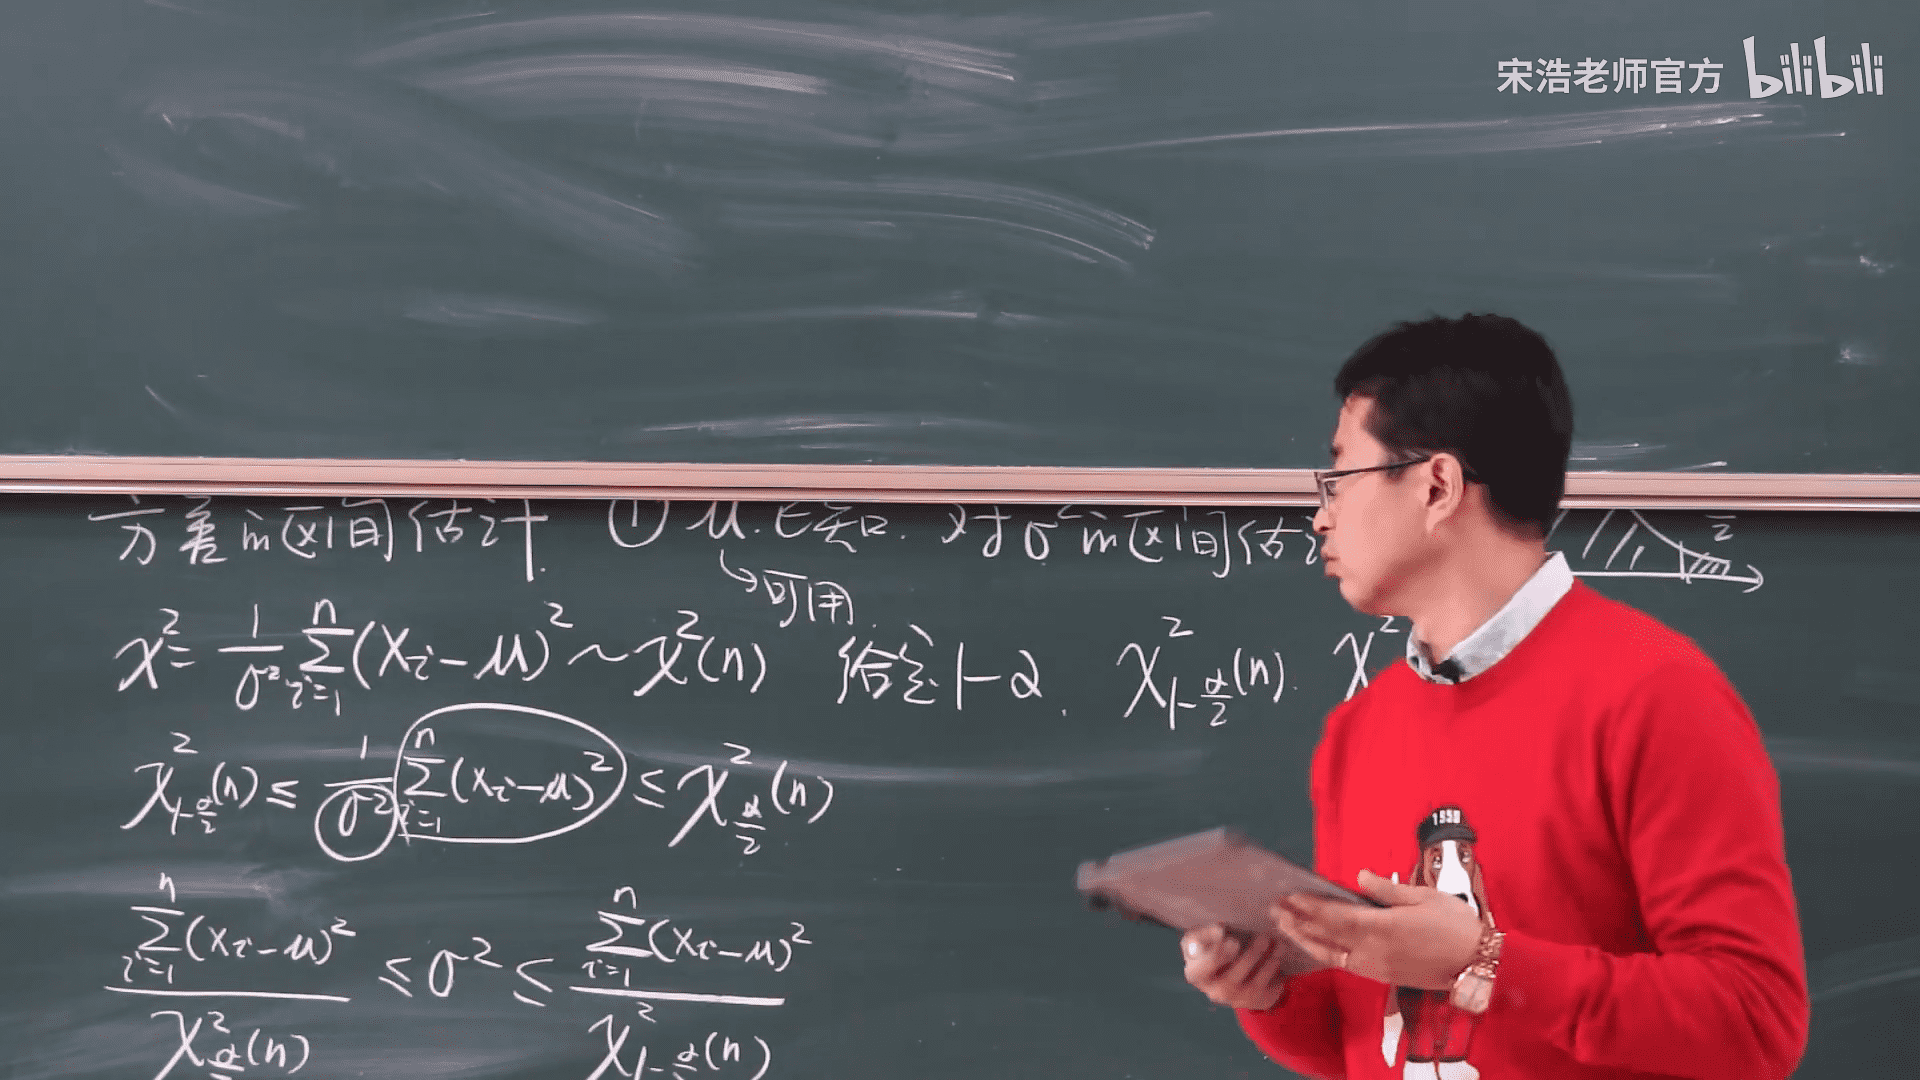 宋浩老师官方 bilibili
方差的区间估计. ① μ.已知. 对σ²的区间估
α/2
↳可用.
χ² = 1/σ² Σ_{i=1}^{n} (X_i - μ)² ~ χ²(n) 给定 1-α. χ²_{1-α/2}(n). χ²
χ²_{1-α/2}(n) ≤ 1/σ² Σ_{i=1}^{n} (X_i - μ)² ≤ χ²_{α/2}(n)
Σ_{i=1}^{n} (X_i - μ)² / χ²_{α/2}(n) ≤ σ² ≤ Σ_{i=1}^{n} (X_i - μ)² / χ²_{1-α/2}(n)
1550